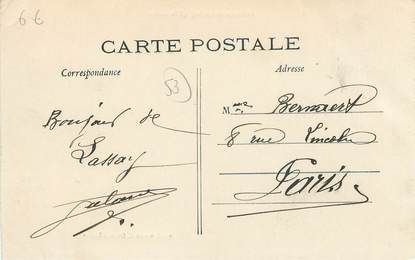 6€
CARTE POSTALE
Correspondance
Adresse
53
Bonjour de
Lassay
Mme Bernaert
8 rue Lincoln
Paris